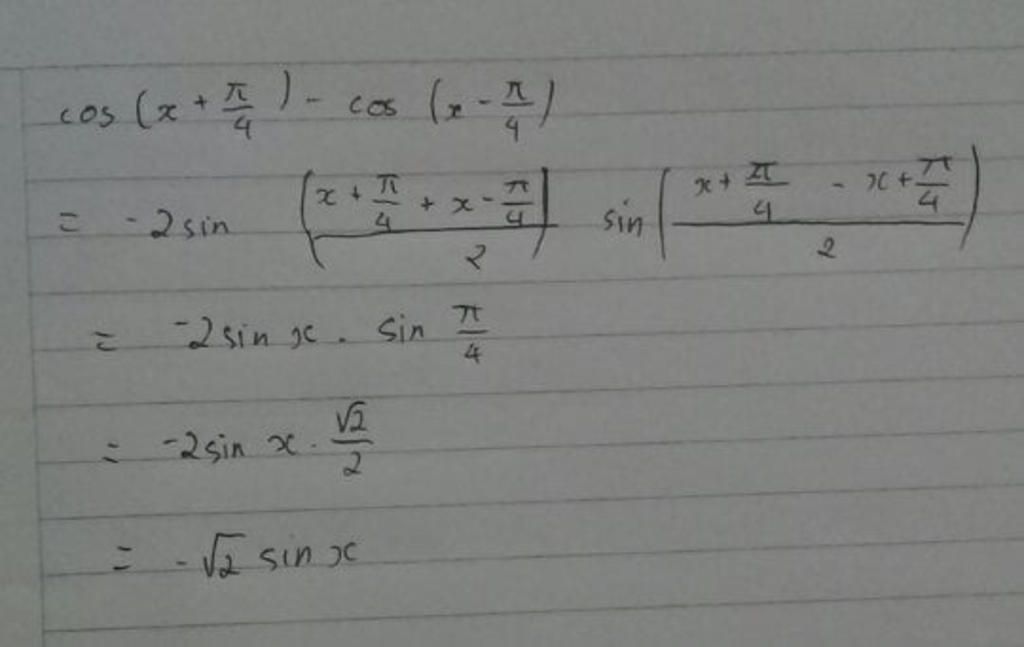 cos (x + π/4) - cos (x - π/4)
= -2 sin ((x + π/4 + x - π/4)/2) sin ((x + π/4 - x + π/4)/2)
= -2 sin x . sin π/4
= -2 sin x . √2/2
= -√2 sin x